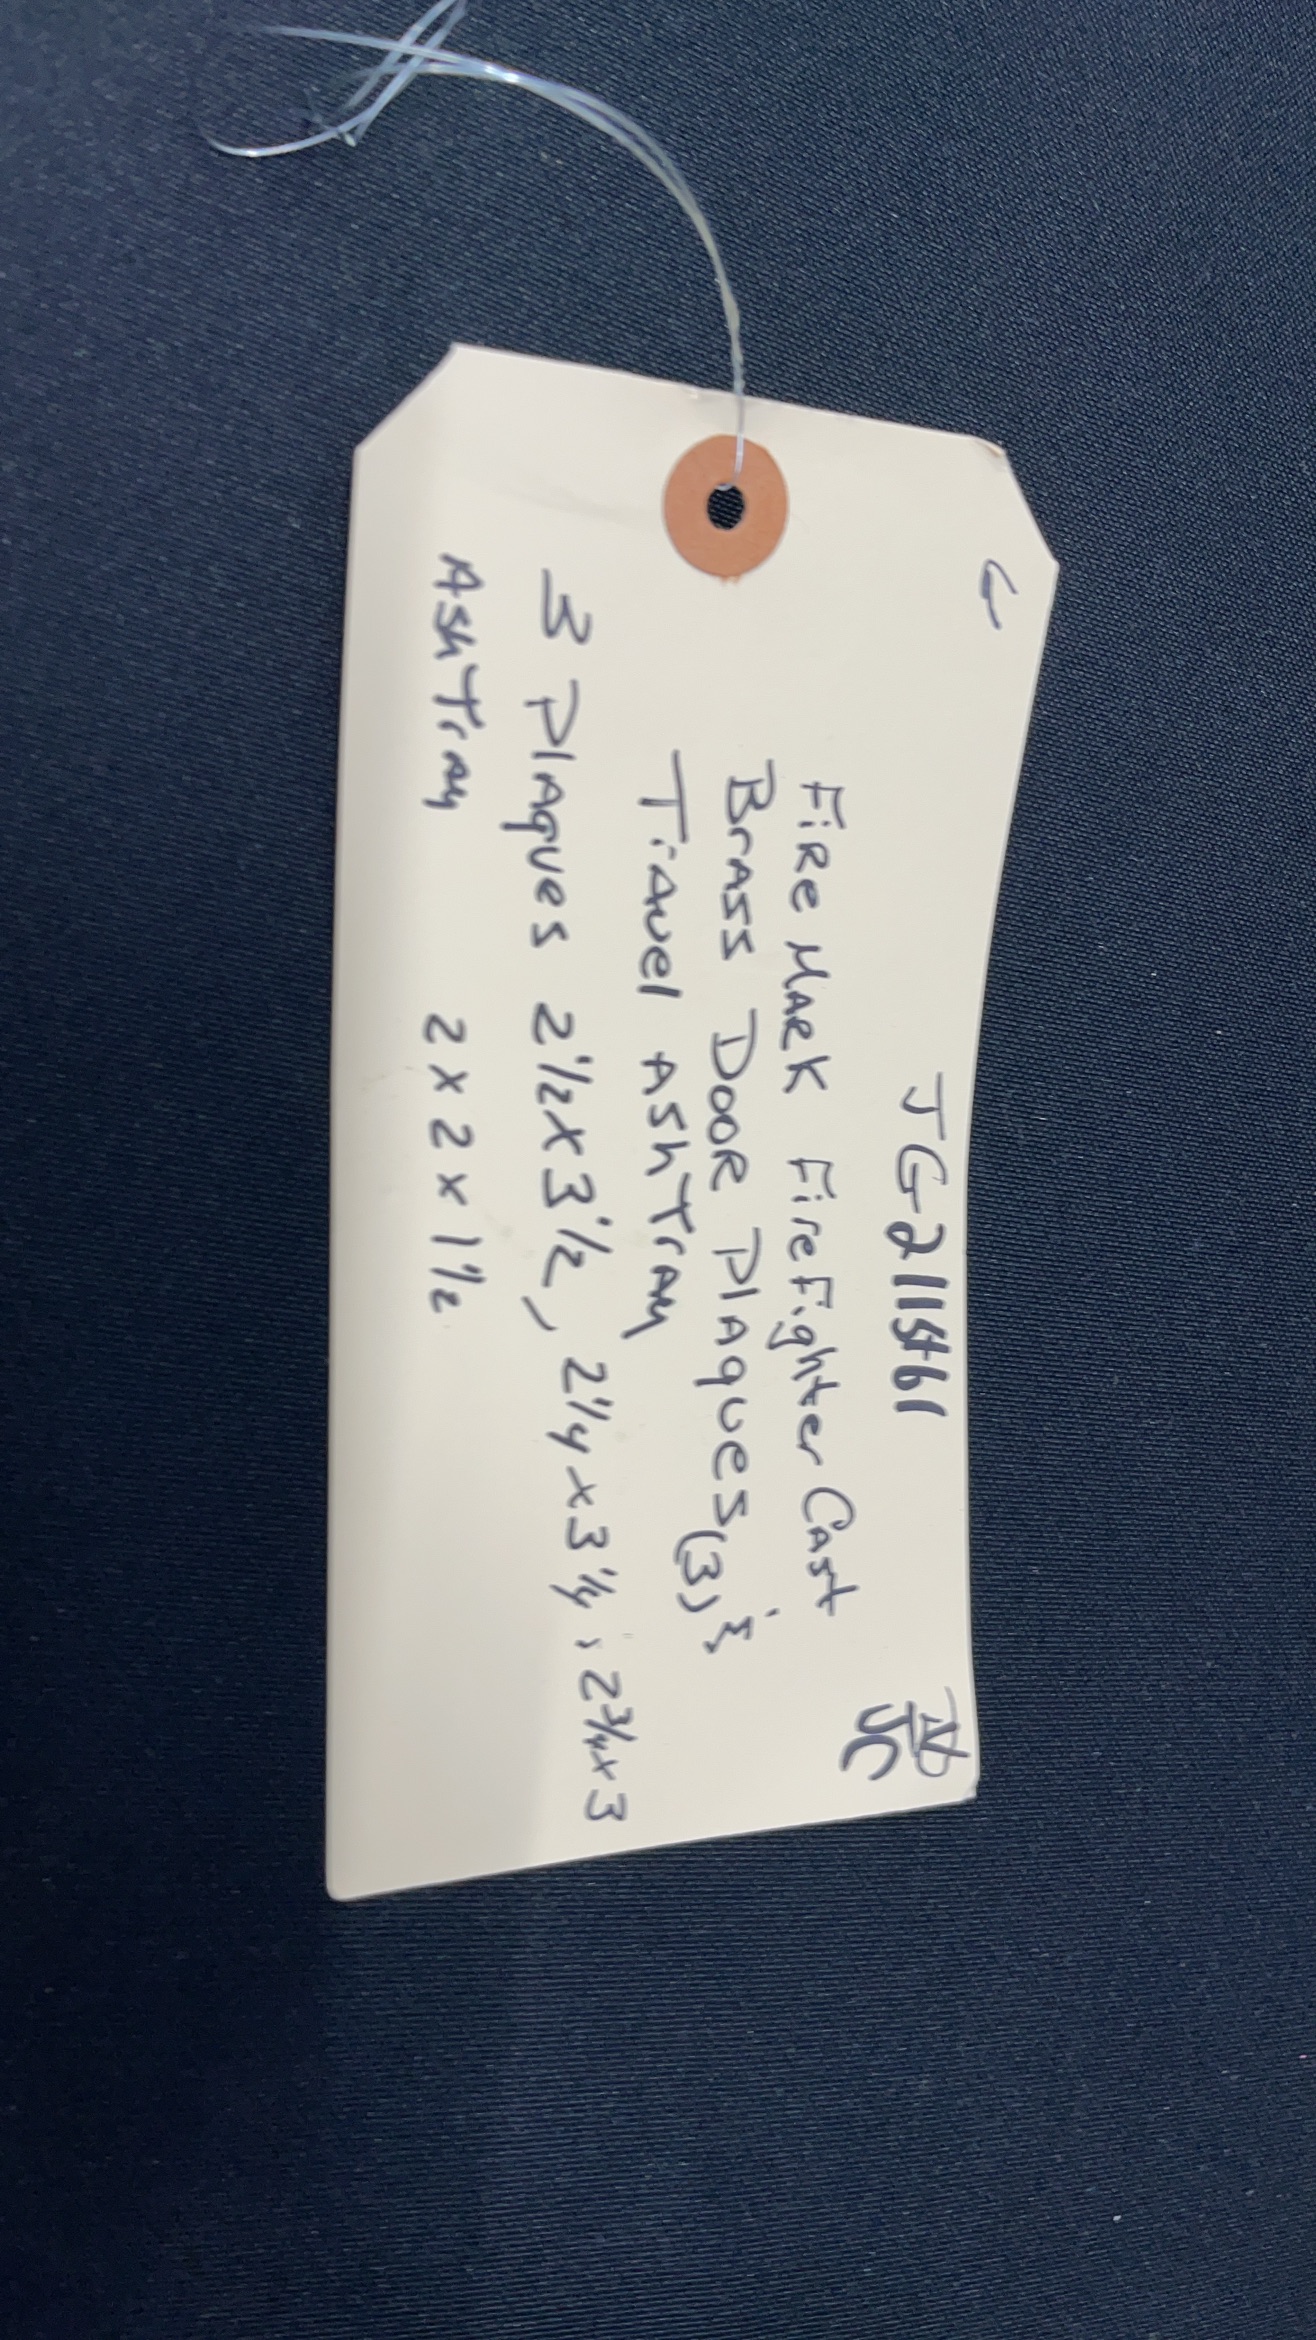 JG-211
Fire Mark Firefighter Cast
Brass Door Plaques (3) &
Travel Ashtray
3 Plaques 2 1/2 x 3 1/2, 2 1/4 x 3 1/4, 2 3/4 x 3
Ashtray 2 x 2 x 1 1/2
JC